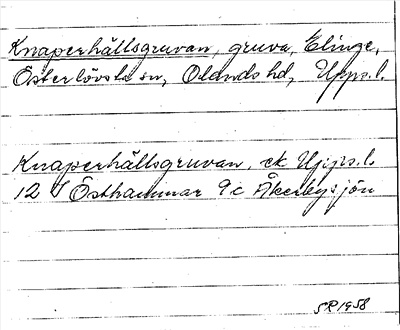 Knaperhällsgruvan, gruva, Elinge,
Österlövsta sn, Olands hd, Upps. l.
Knaperhällsgruvan, ek Upps. l.
12 I Östhammar 9 c Åkerbysjön
SR 1958